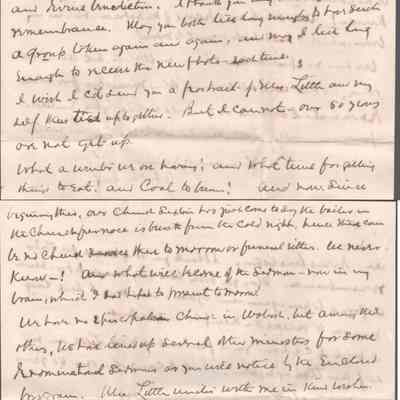 and Divine benediction. I thank you
remembrance. May you both live long enough to
a group taken again and again, and may I live long
enough to receive the new photo each time.
I wish I c'd send you a portrait of Mrs. Little and my
self thus tied up together. But I cannot - our 50 years
are not yet up.
What a winter we are having! and what time for getting
things to eat! and Coal to burn! And now since
beginning this, our Church Sexton has just come to say the boiler in
the Church furnace is burst from the cold night, hence there can
be no Church service there to morrow or funeral either. We never
know -! And what will become of the Sermon - now in my
brain, which I had hoped to present to morrow.
We have no Episcopalian Church in Woburn, but among the
others, we have several other ministers for some
denominational Sermons as you will notice by the enclosed
program. Mrs. Little unites with me in kind wishes.